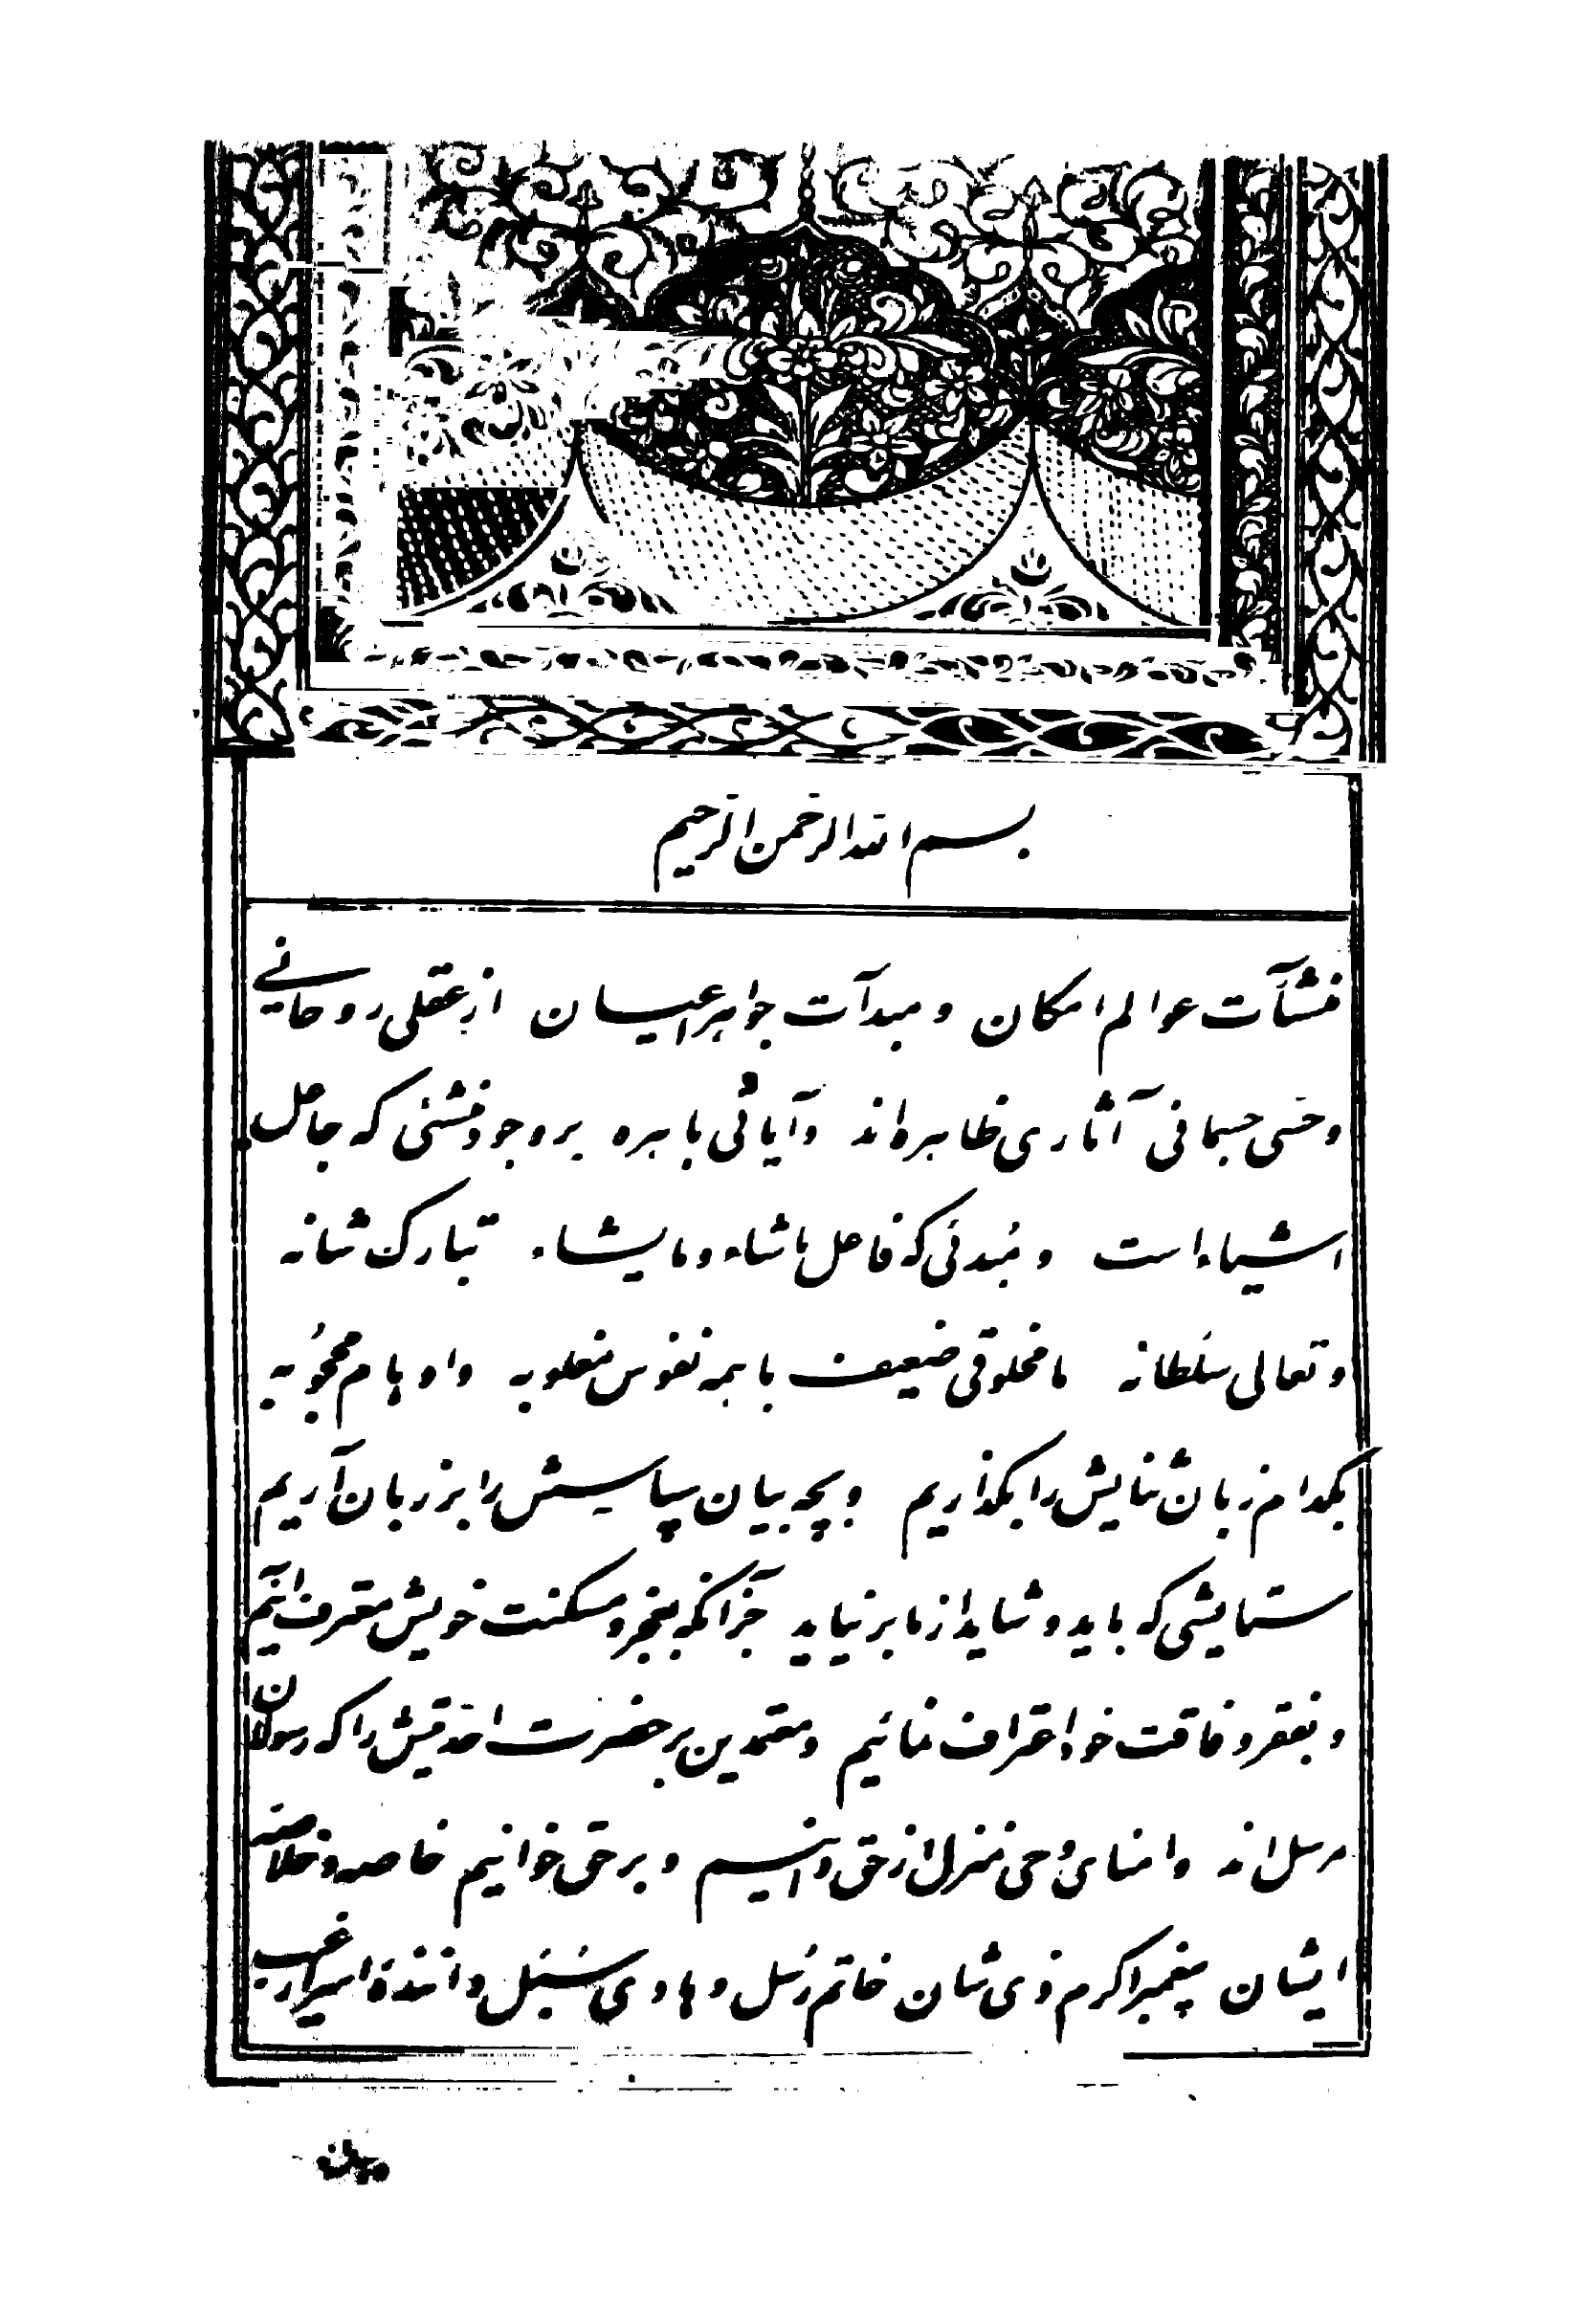 بسم الله الرحمن الرحیم
منشآت عوالم امکان و مبدآت جواهر اعیان از عقلی روحانی
و حسی جسمانی آثاری ظاهره‌اند و آیاتی باهره بر وجود منشئی که جاعل
اشیاء است و مُبدئی که فاعل ماشاء و مایشاء تبارک شانه
و تعالی سلطانه ما مخلوقی ضعیف با همه نفوس مغلوبه و اوهام محجوُبه
بکدام زبان ثنایش را بگذاریم و بچه بیان سپاسش را بر زبان آریم
ستایشی که باید و شاید از ما بر نیاید جز آنکه بعجز و مسکنت خویش معترف آئیم
و بفقر و فاقت خود اعتراف نمائیم و معتمدین بر حضرت احدیتش را که رسولان
مرسل‌اند و امنای وحی منزل از حق دانیم و بر حق خوانیم خاصه و خلاصه
ایشان پیغمبر اکرم ذی شان خاتم رُسل و هادی سُبُل دانندهٔ اسرار غیب